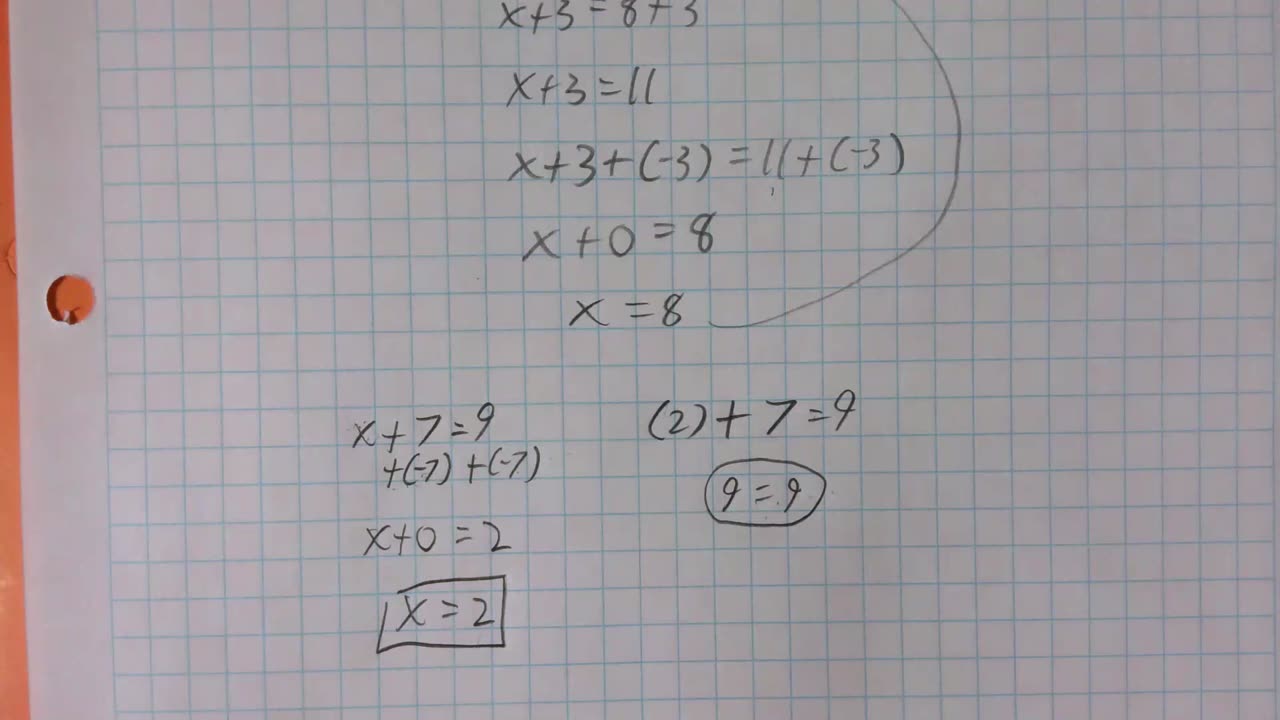 x+3=8+3
x+3=11
x+3+(-3)=11+(-3)
x+0=8
x=8
x+7=9
+(-7) +(-7)
x+0=2
x=2
(2)+7=9
9=9